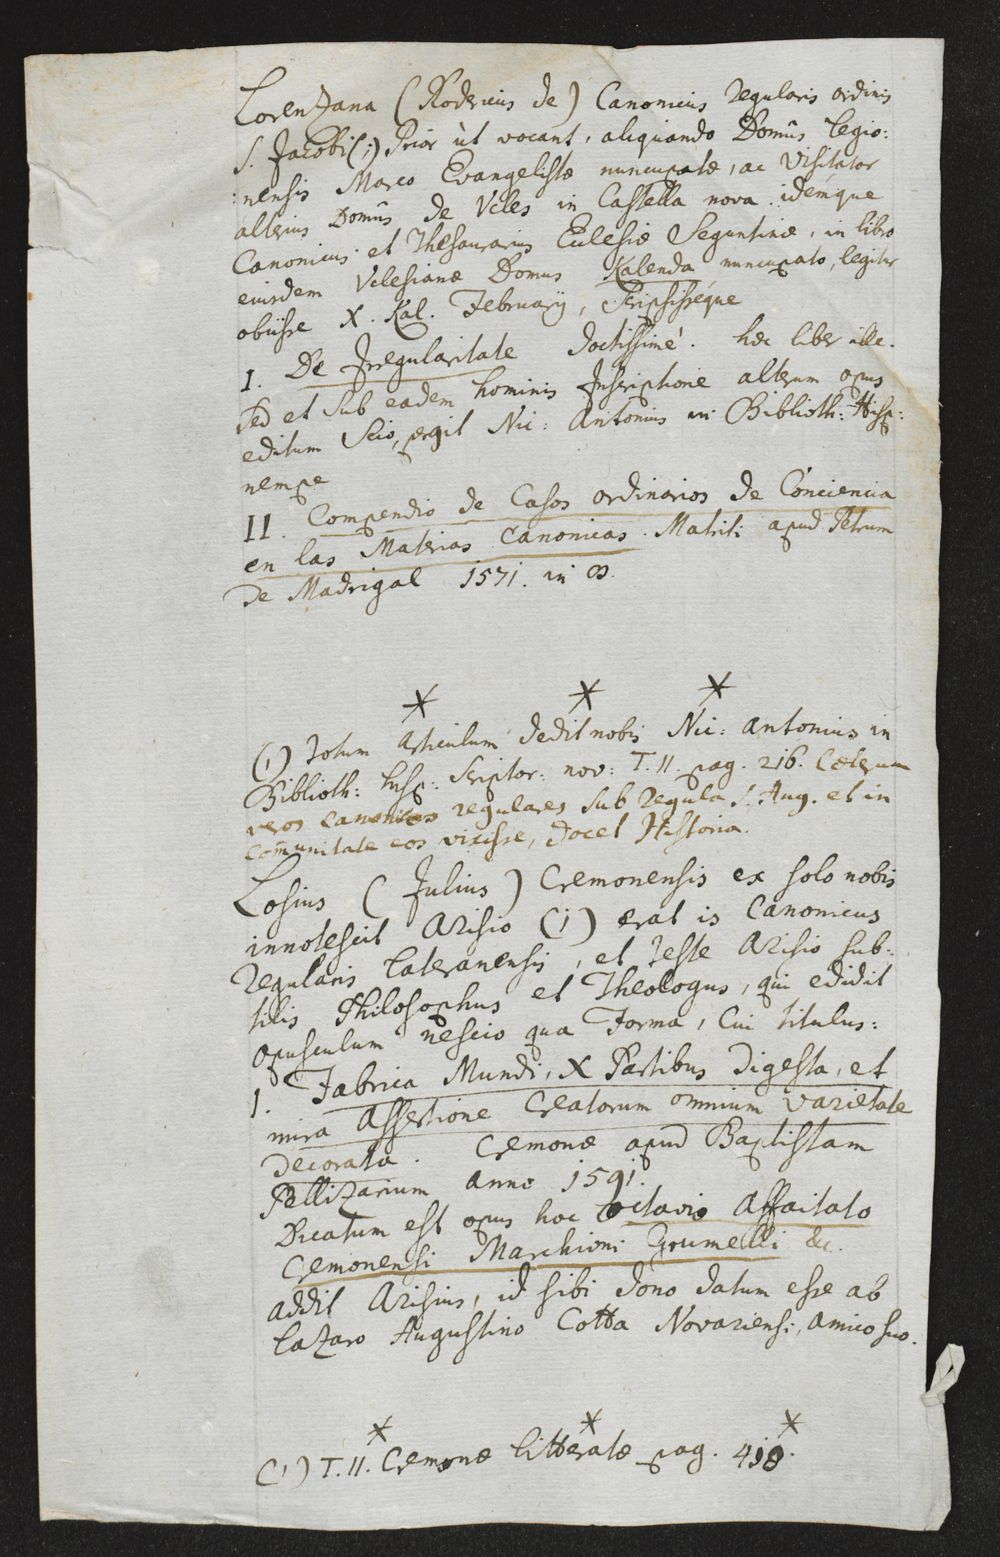 Lorenzana (Rodericus de) Canonicus regularis ordinis
S. Jacobi (i) Prior ùt vocant, aliquando Domûs legio:
:nensis Marco Evangelistæ nuncupatæ, ac Visitator
alterius Domûs de Ucles in Castella nova idémque
Canonicus et Thesaurarius Eclesiæ Seguntinæ, in libro
eiusdem Uclesianæ Domus Kalenda nuncupato, legitur
obiisse X. Kal. Februarij, scripsisséque
I. De Irregularitate doctissimé. hæc liber ille.
Sed et sub eadem hominis Inscriptione alterum opus
editum Scio, pergit Nic: Antonius in Biblioth: Hisp:
nempe
II. Compendio de Casos ordinarios de Conciencia
en las Materias Canonicas. Matriti apud Petrum
de Madrigal 1571. in 8.
* * *
(i) Totum Articulum dedit nobis Nic: Antonius in
Biblioth: hisp: Scriptor: nov: T. II. pag. 216. Cæterum
veros Canonicos regulares sub regula S. Aug. et in
com̃unitate eos vixisse, docet Historia.
Losius (Julius) Cremonensis ex solo nobis
innotescit Arisio (i) erat is Canonicus
Regularis lateranensis, et teste Arisio sub:
tilis Philosophus et Theologus, qui edidit
opusculum nescio qua Forma, Cui titulus:
I. Fabrica Mundi, X Partibus digesta, et
mira Assertione Creatorum omnium varietate
decorata. Cremonæ apud Baptistam
Pellizarium Anno 1591.
Dicatum est opus hoc Octavio Affaitato
Cremonensi Marchioni Grumelli &c.
addit Arisius, id sibi dono datum esse ab
Lazaro Augustino Cotta Novariensi, amico suo.
* * *
(i) T. II. Cremonæ litteratæ pag. 418.